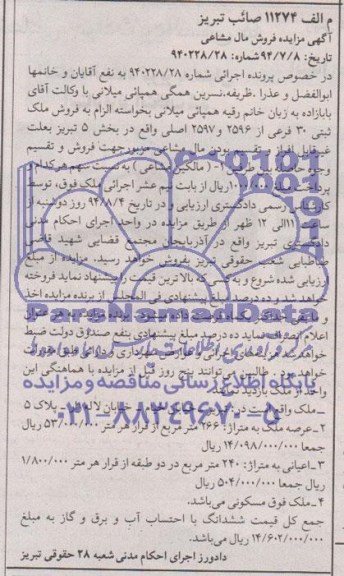 م الف ۱۱۲۷۴ صائب تبریز
آگهی مزایده فروش مال مشاعی
تاریخ: ۹۴/۷/۸ شماره: ۹۴۰۲۲۸/۲۸
در خصوص پرونده اجرائی شماره ۹۴۰۲۲۸/۲۸ به نفع آقایان و خانمها
ابوالفضل و عذرا، ظریفه، نسرین همگی همپائی میلانی با وکالت آقای
بابازاده به زیان خانم رقیه همپائی میلانی بخواسته الزام به فروش ملک
ثبتی ۳۰ فرعی از ۲۵۹۶ و ۲۵۹۷ اصلی واقع در بخش ۵ تبریز بعلت
غیرقابل افراز و تقسیم بودن مال مشاعی مزبور جهت فروش و تقسیم
وجوه حاصله بین طرفین (مالکین مشاعی) به نسبت سهم هرکدام و
پرداخت ۱۰۰/۰۰۰ ریال از بابت نیم عشر اجرائی ملک فوق، توسط
کارشناس رسمی دادگستری ارزیابی و در تاریخ ۹۴/۸/۴ روز دوشنبه از
ساعت ۱۱ الی ۱۲ ظهر از طریق مزایده در واحد اجرای احکام مدنی
دادگستری تبریز واقع در آذربایجان مجتمع قضایی شهید قاضی
طباطبایی شعبه حقوقی تبریز بفروش خواهد رسید. مزایده از مبلغ
ارزیابی شده شروع و به کسی که بالاترین قیمت را پیشنهاد نماید فروخته
خواهد شد و ده درصد مبلغ پیشنهادی فی المجلس از برنده مزایده اخذ
برنده مزایده به هر عنوان
اعلام انصراف نماید ده درصد مبلغ پیشنهادی بنفع صندوق دولت ضبط
خواهد شد
خواهد بود. طالبین می‌توانند پنج روز قبل از مزایده با هماهنگی این
واحد از ملک بازدید نمایند.
ParsNamadData
پایگاه اطلاع رسانی مناقصه و مزایده
۰۲۱-۸۸۳۴۹۶۷۰-۵
ملک واقع است در خیابان لاله پلاک ۵
۲-عرصه ملک به متراژ: ۲۶۶ متر مربع از قرار هر متر ۵۳/۰۰۰/۰۰۰ ریال
جمعا ۱۴/۰۹۸/۰۰۰/۰۰۰ ریال
۳-اعیانی به متراژ: ۲۴۰ متر مربع در دو طبقه از قرار هر متر ۱/۸۰۰/۰۰۰
ریال جمعا ۵۰۴/۰۰۰/۰۰۰ ریال
۴-ملک فوق مسکونی می‌باشد.
جمع کل قیمت ششدانگ با احتساب آب و برق و گاز به مبلغ
۱۴/۶۰۲/۰۰۰/۰۰۰ ریال می‌باشد.
دادورز اجرای احکام مدنی شعبه ۲۸ حقوقی تبریز